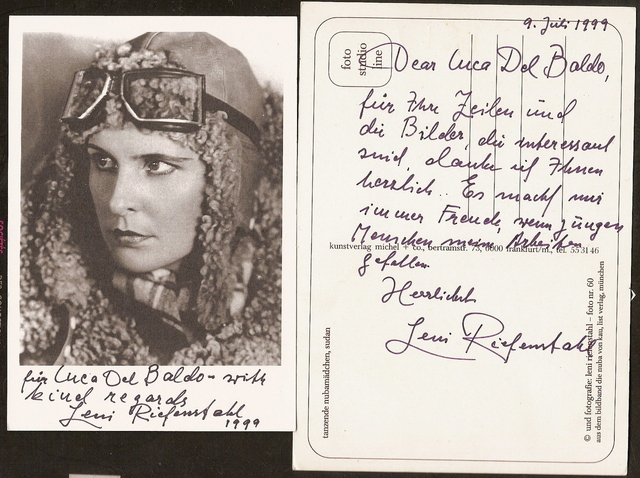 für Luca Del Baldo - with
kind regards
Leni Riefenstahl
1999
9. Juli 1999
foto
studio
line
Dear Luca Del Baldo,
für Ihre Zeilen und
die Bilder, die interessant
sind, danke ich Ihnen
herzlich. Es macht mir
immer Freude, wenn jungen
Menschen meine Arbeiten
gefallen
Herzlichst
Leni Riefenstahl
kunstverlag michel + co., bertramstr. 75, 6000 frankfurt/m., tel. 55 31 46
tanzende nubamädchen, sudan
© und fotografie: leni riefenstahl – foto nr. 60
aus dem bildband die nuba von kau, list verlag, münchen